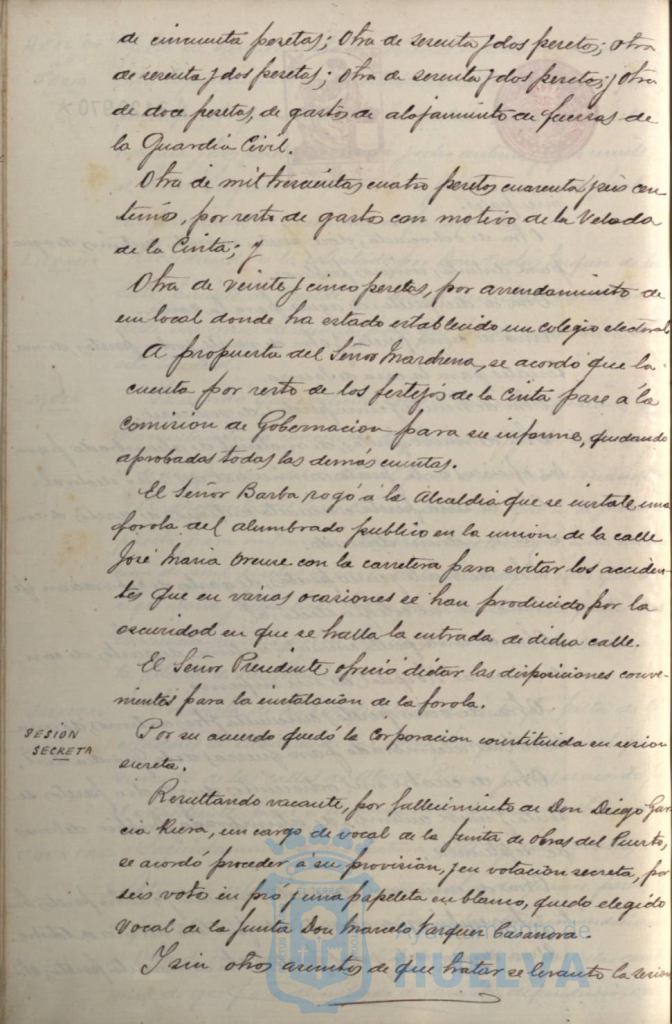 de cincuenta pesetas; Otra de sesenta y dos pesetas; Otra
de sesenta y dos pesetas; Otra de sesenta y dos pesetas; y Otra
de doce pesetas, de gastos de alojamiento de fuerzas de
la Guardia Civil.
Otra de mil trescientas cuatro pesetas cuarenta y seis cen-
timos, por resto de gastos con motivo de la Velada
de la Cinta; y
Otra de veinte y cinco pesetas, por arrendamiento de
un local donde ha estado establecido un colegio electoral
A propuesta del Señor Marchena, se acordó que la
cuenta por resto de los festejos de la Cinta pase á la
Comision de Gobernacion para su informe, quedando
aprobadas todas las demás cuentas.
El Señor Barba rogó á la Alcaldia que se instale una
farola del alumbrado publico en la union de la calle
José Maria Orense con la carretera para evitar los acciden-
tes que en varias ocasiones se han producido por la
oscuridad en que se halla la entrada de dicha calle.
El Señor Presidente ofreció dictar las disposiciones conve-
nientes para la instalacion de la farola.
SESION
SECRETA
Por su acuerdo quedó la Corporacion constituida en sesion
secreta.
Resultando vacante, por fallecimiento de Don Diego Gar-
cia Riera, un cargo de vocal de la Junta de Obras del Puerto,
se acordó proceder á su provision, y en votacion secreta, por
seis votos en pró y una papeleta en blanco, quedó elegido
Vocal de la Junta Don Marcelo Vazquez Casanova.
Y sin otros asuntos de que tratar se levantó la sesion
Ayuntamiento de
HUELVA